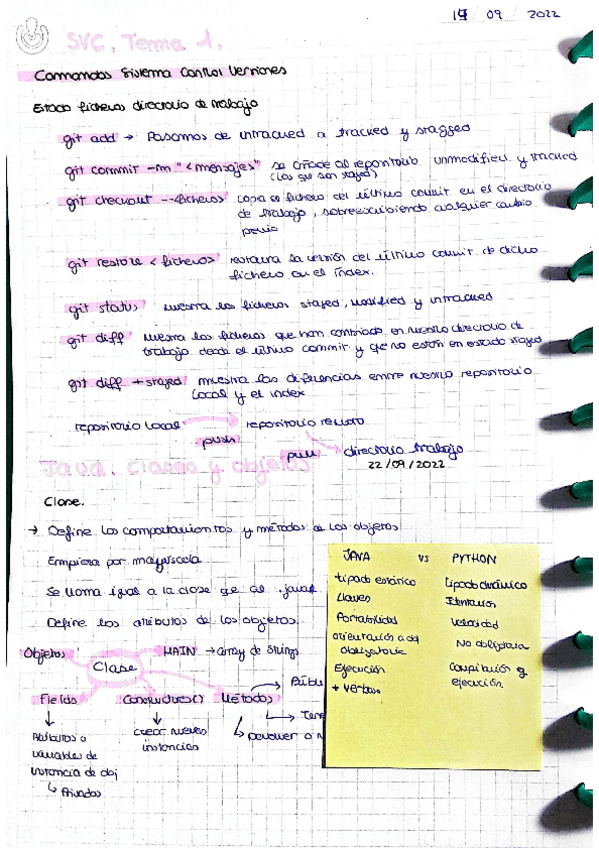 19 / 09 / 2022
SVC. Tema 1.
Comandos Sistema Control Versiones
Estado ficheros directorio de trabajo
git add → Pasamos de untracked a tracked y stagged
git commit -m "<mensaje>" se añade al repositorio unmodified y tracked
(los que son staged)
git checkout --<fichero> copia el fichero del último commit en el directorio
de trabajo, sobreescribiendo cualquier cambio
previo
git restore <fichero> restaura la versión del último commit de dicho
fichero en el index.
git status muestra los ficheros staged, modified y untracked
git diff muestra los ficheros que han cambiado en nuestro directorio de
trabajo desde el último commit y que no están en estado staged
git diff + staged muestra las diferencias entre nuestro repositorio
local y el index
repositorio local repositorio remoto
push
pull directorio trabajo
Java. Clases y objetos
22/09/2022
Clase.
→ Define los comportamientos y métodos de los objetos
Empieza por mayúscula
Se llama igual a la clase que al .java
Define los atributos de los objetos.
Objetos MAIN → array de strings
Clase
Fields Constructores() Métodos
Públi
Tene
Devolver o n
crear nuevas
instancias
Atributos o
variables de
instancia de obj
↳ Privados
JAVA vs PYTHON
tipado estático tipado dinámico
Llaves Identación
Portabilidad Velocidad
Orientación a obj
obligatoria No obligatoria
Ejecución Compilación y
ejecución.
+ verboso